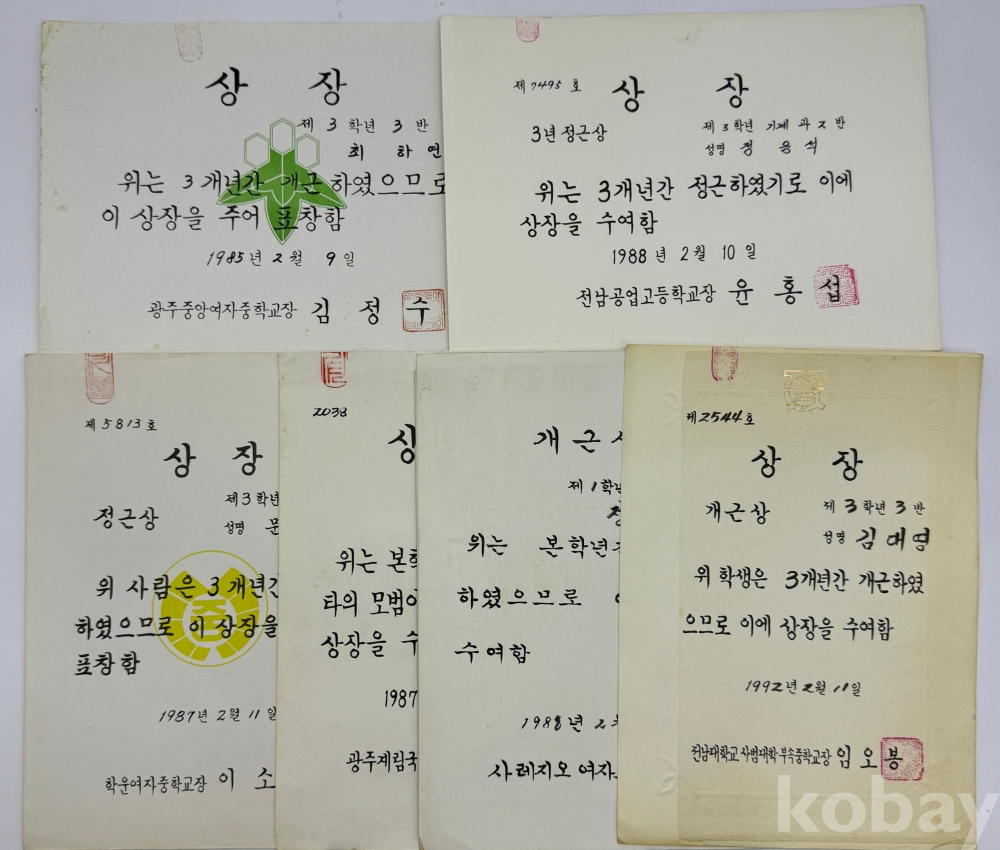 상 장
제 3 학년 3 반
최 하 연
위는 3 개년간 개근 하였으므로
이 상장을 주어 표창함
1985년 2월 9일
광주중앙여자중학교장 김 정 수
제7495호
상 장
3년정근상
제3학년 기계과2반
성명 정용석
위는 3개년간 정근하였기로 이에
상장을 수여함
1988년 2월 10일
전남공업고등학교장 윤 홍 섭
제5813호
상 장
정근상
제3학년
성명 문
위 사람은 3개년간
하였으므로 이 상장을
표창함
1987년 2월 11일
학운여자중학교장 이 소
2038
상
위는 본학
타의 모범이
상장을 수
1987
광주계림국
개 근
제1학년
위는 본학년
하였으므로
수여함
1988년 2월
사레지오 여자
제2544호
상 장
개근상
제3학년 3반
성명 김대영
위 학생은 3개년간 개근하였
으므로 이에 상장을 수여함
1992년 2월 11일
전남대학교 사범대학 부속중학교장 임오봉
kobay